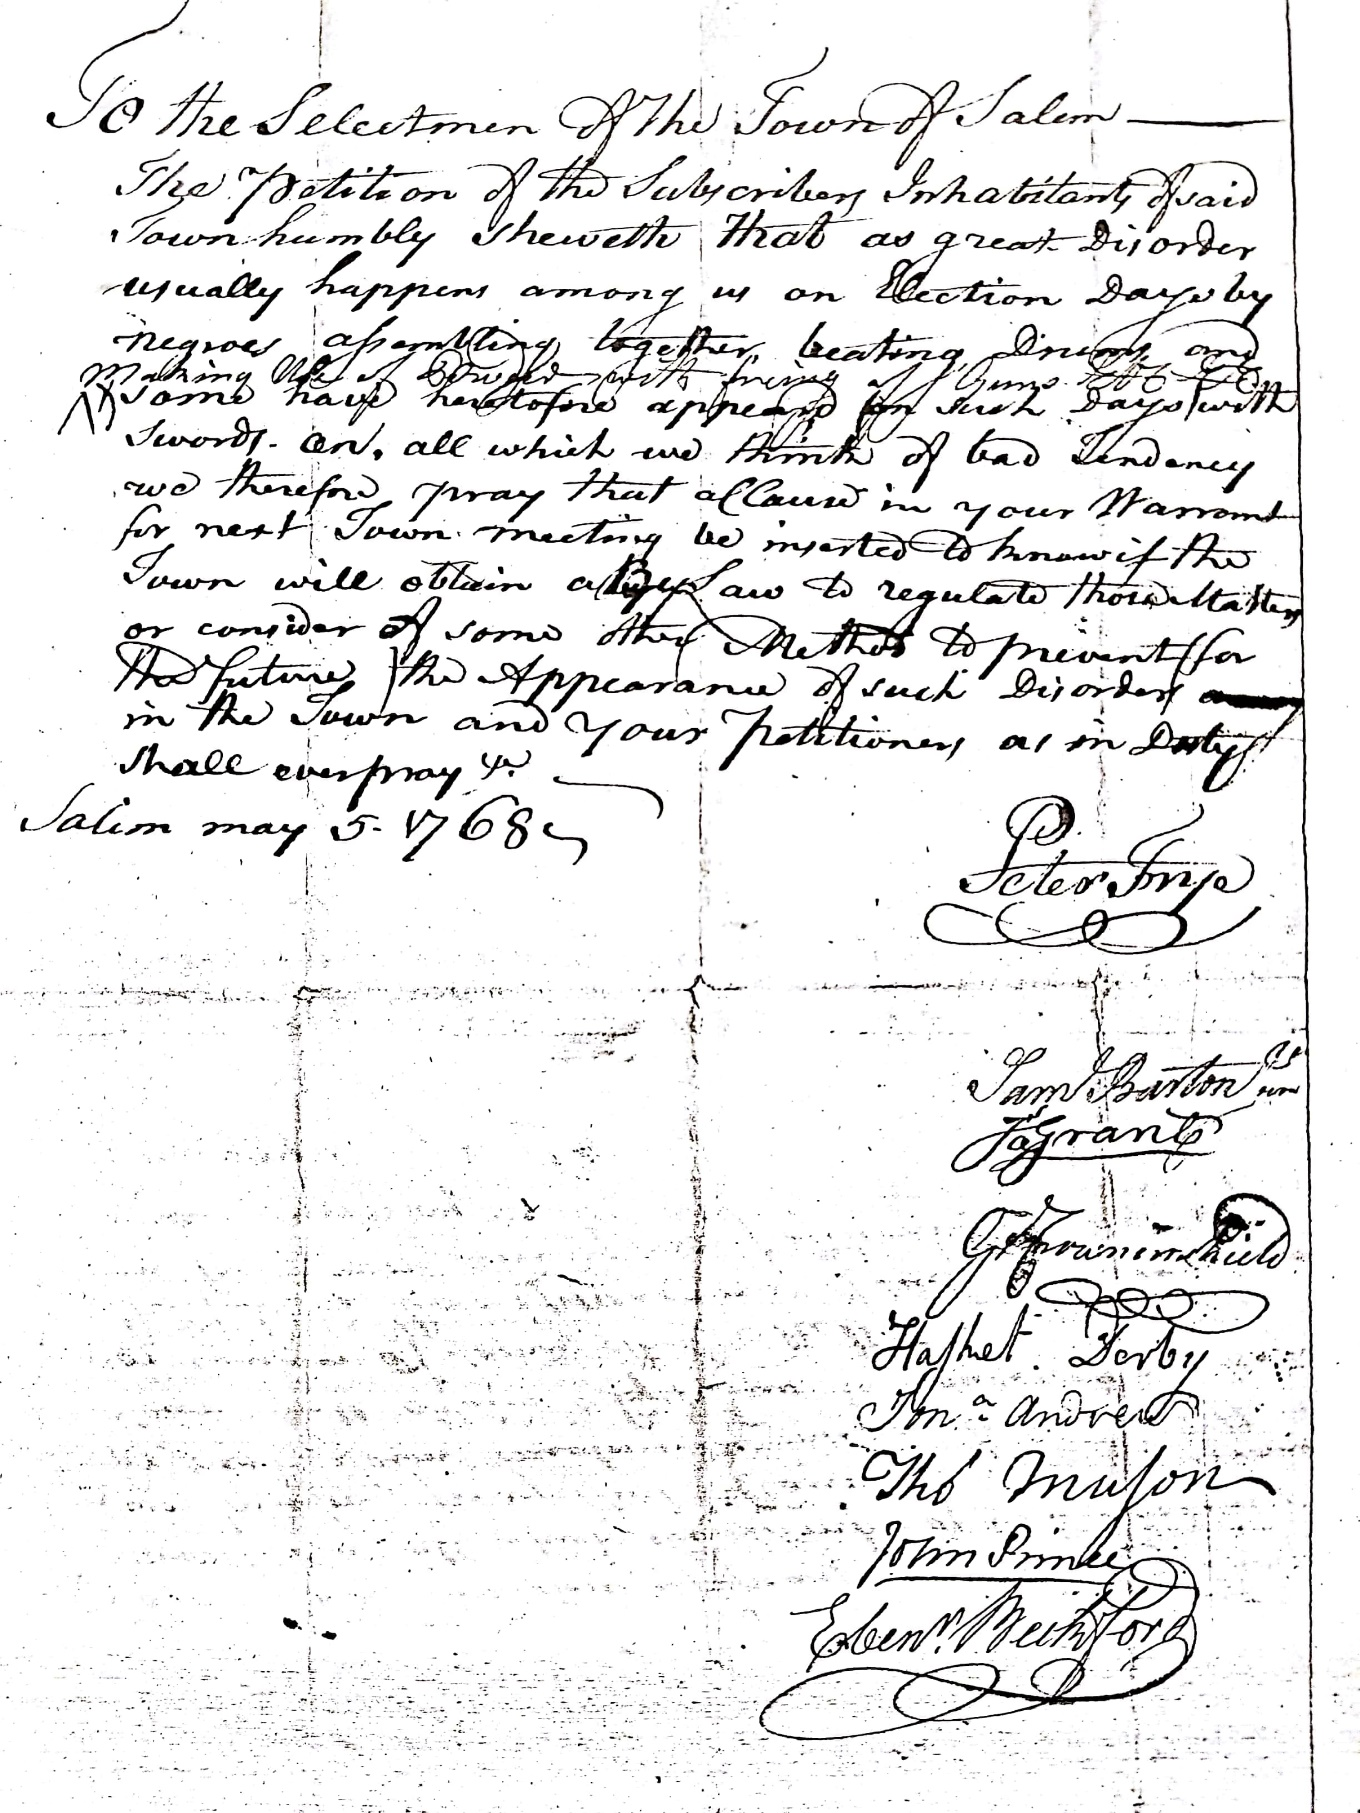 To the Selectmen of the Town of Salem
The Petition of the Subscribers Inhabitants of said
Town humbly sheweth that as great Disorder
usually happens among us on Election Days by
negroes assembling together, beating Drums, and
Making Use of Powder with fireing of Guns
some have heretofore appeard on such Days with
Swords. all which we think of bad Tendency
we therefore pray that a Clause in your Warrant
for next Town meeting be inserted to know if the
Town will obtain a By Law to regulate those Matters
or consider of some other Method to prevent for
the future the Appearance of such Disorders
in the Town and your Petitioners as in Duty
shall ever pray &c.
Salem may 5. 1768
Peter Frye
Saml. Barton
Fra Grant
G Crowninshield
Hasket. Derby
Jona. Andrew
Tho Mason
John Prince
Ebenr. Bickford